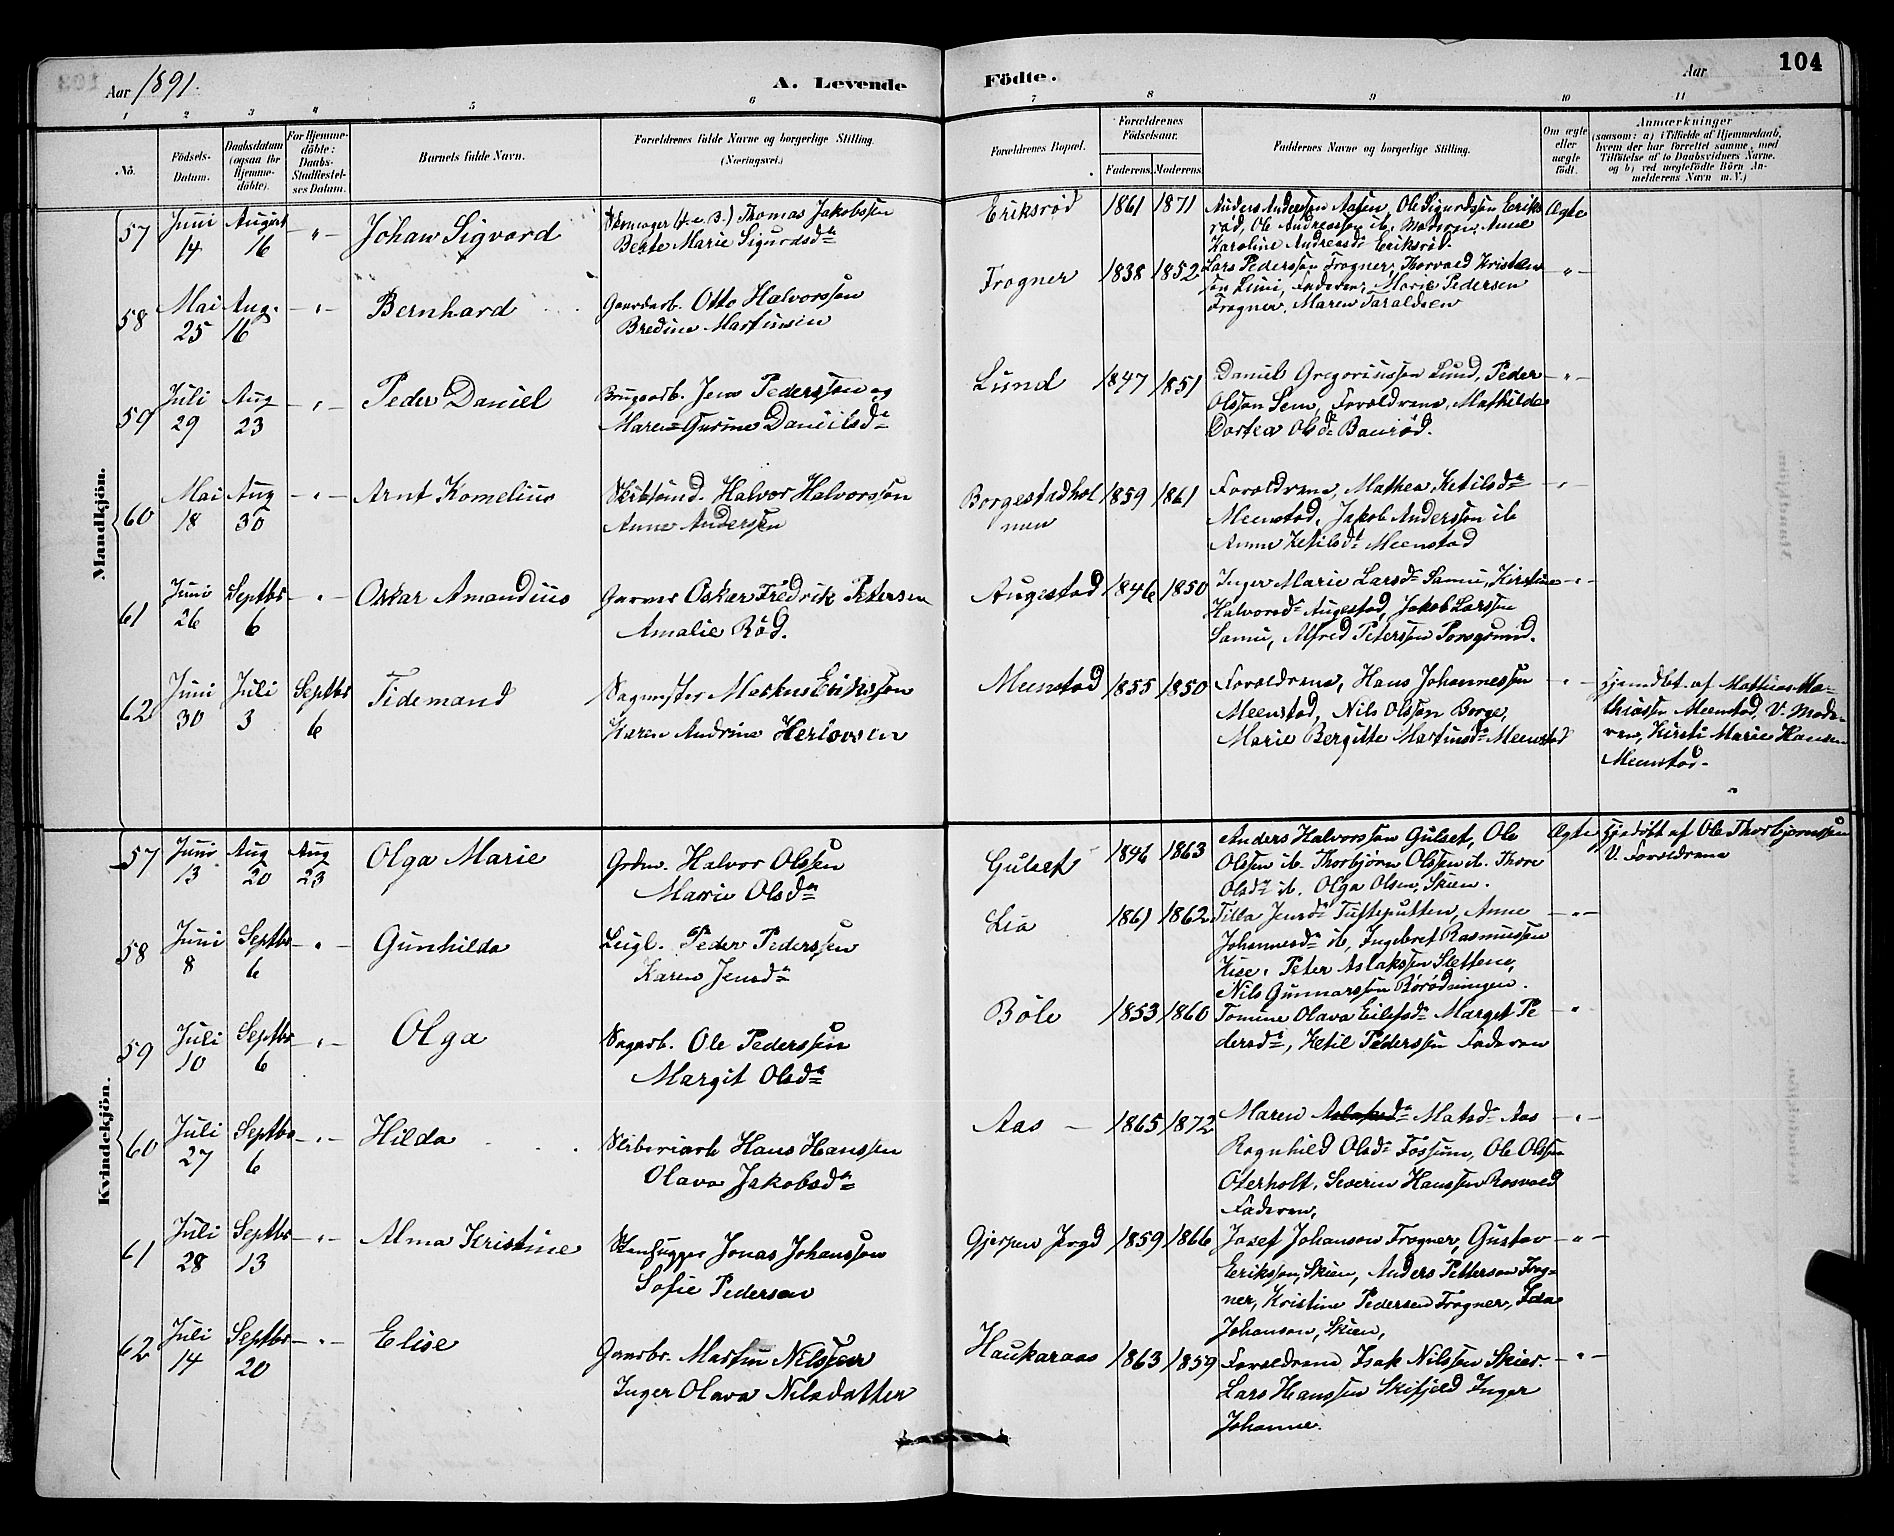 Aar 1891.
A. Levende Födte.
Aar
104
1 2 3 4 5 6 7 8 9 10 11
No.
Födsels-Datum.
Daabsdatum (ogsaa for Hjemme-döbte).
For Hjemme-döbte: Daabs-Stadfæstel-ses Datum.
Barnets fulde Navn.
Forældrenes fulde Navne og borgerlige Stilling. (Næringsvei.)
Forældrenes Bopæl.
Forældrenes Födselsaar.
Faderens. Moderens.
Faddernes Navne og borgerlige Stilling.
Om ægte eller uægte födt.
Anmærkninger
(saasom: a) i Tilfælde af Hjemmedaab, hvem der har forrettet samme, med Tilföielse af to Daabsvidners Navne. og b) ved uægtefödte Börn Anmelderens Navn m. V.)
Mandkjön.
57 Juni 14 August 16 - " - Johan Sigvard
Skomager Thomas Jakobssen
Berte Marie Sigurdsdr
Eriksrød 1861 1871
Anders Anderssen Aasen, Ole Sigurdssen Eriks
rød, Ole Andreassen ib. Moderen, Anne
Karoline Andreasdr Eriksrød.
Ægte
58 Mai 25 Aug. 16 - " - Bernhard
Gaardarb. Otto Halvorssen
Bredine Martinsen
Frogner 1838 1852
Lars Pederssen Frogner, Thorvald Kristen
sen Limi, Faderen, Marie Pedersen
Frogner, Maren Taraldsen
- " -
59 Juli 29 Aug 23 - " - Peder Daniel
Brugsarb. Jens Pederssen og
Maren Gurine Danielsdr
Lund 1847 1851
Daniel Gregoriussen Lund, Peder
Olssen Sem, Forældrene, Mathilde
Dortea Olsdr Baurød.
- " -
60 Mai 18 Aug 30 - " - Arnt Kornelius
Halvor Halvorssen
Anne Anderssen
Borgestadhol
men
1859 1861
Forældrene, Mathea Ketilsdr
Meenstad, Jakob Anderssen ib
Anne Ketilsdr Meenstad
- " -
61 Juni 26 Septbr 6 - " - Oskar Amandius
Garver Oskar Fredrik Petersen
Amalie Rød.
Augestad 1846 1850
Inger Marie Larsdr Samu, Kirstine
Halvorsdr Augestad, Jakob Larssen
Samu, Alfred Peterssen Porsgrund.
- " -
62 Juni 30 Juli 3 Septbr 6 Tidemand
Sagmester Markus Erikssen
Karen Andrine Herlovsen
Meenstad 1855 1850
Forældrene, Hans Johannessen
Meenstad, Nils Olssen Borge,
Marie Bergitte Martinsdr Meenstad
- " -
Hjemdbt. af Mathias Ma-
thiassen Meenstad, V. Mode-
ren, Kirsti Marie Hansen
Meenstad.
Kvindekjön.
57 Juni 13 Aug 20 Aug 23 Olga Marie
Grdm. Halvor Olssen
Marie Olsdr
Gulset 1846 1863
Anders Halvorssen Gulset, Ole
Olssen ib. Thorbjørn Olssen ib. Thore
Olsdr ib. Olga Olsen, Skien.
Ægte
Hjedøbt af Ole Thorbjørnssen
V. Forældrene
58 Juni 8 Septbr 6 - " - Gunhilda
Leigl. Peder Pederssen
Karen Jensdr
Lia 1861 1862
Tilla Jensdr Tufteputten, Anne
Johannesdr ib, Ingebret Rasmussen
Kise, Peter Aslakssen Slettene,
Nils Gunnarssen Rørødningen.
- " -
59 Juli 10 Septbr 6 - " - Olga
Sagarb. Ole Pederssen
Margit Olsdr
Böle 1853 1860
Tomine Olava Eilefsdr Marget Pe
dersdr, Ketil Pederssen Faderen
- "
60 Juli 27 Septbr 6 - " - Hilda
Sliberiarb Hans Hanssen
Olava Jakobsdr
Aas 1865 1872
Maren Matsdr Aas
Ragnhild Olsdr Fossum, Ole Olssen
Oterholt, Severin Hanssen Rosvald
Faderen,
- " -
61 Juli 28 Septbr 13 - " - Alma Kristine
Stenhugger Jonas Johanssen
Sofie Pedersen
Gjerpen Prgd 1859 1866
Josef Johanson Frogner, Gustav
Erikssen, Skien, Anders Petterson Frog-
ner, Kristine Pedersen Frogner, Ida
Johanson, Skien,
- " -
62 Juli 14 Septbr 20 - " - Elise
Gaardbr. Martin Nilssen
Inger Olava Nilsdatter
Haukaraas 1863 1859
Forældrene Isak Nilssen Skien.
Lars Hanssen Skifjeld Inger
Johanne.
- " -